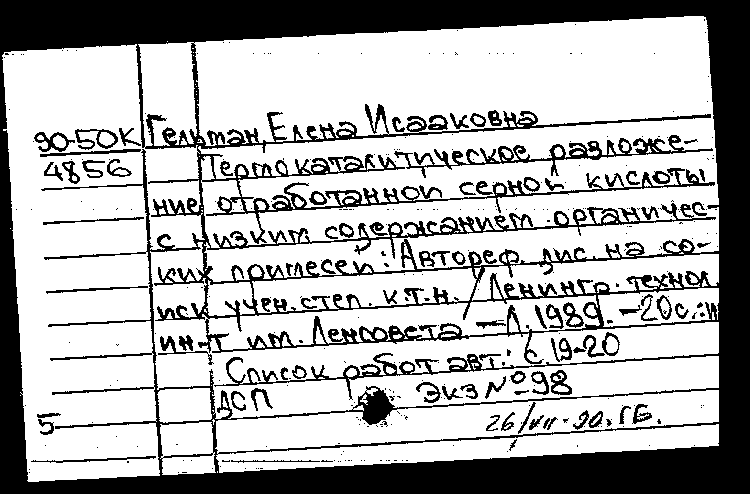 90-50К Гельман, Елена Исааковна
4856 Термокаталитическое разложе-
ние отработанной серной кислоты
с низким содержанием органичес-
ких примесей: Автореф. дис. на со-
иск. учен. степ. к.т.н. / Ленингр. технол.
ин-т им. Ленсовета. — Л., 1989. — 20 с.: и
Список работ авт.: с. 19-20
ДСП Экз № 98
5 26/VII-90. ГБ.